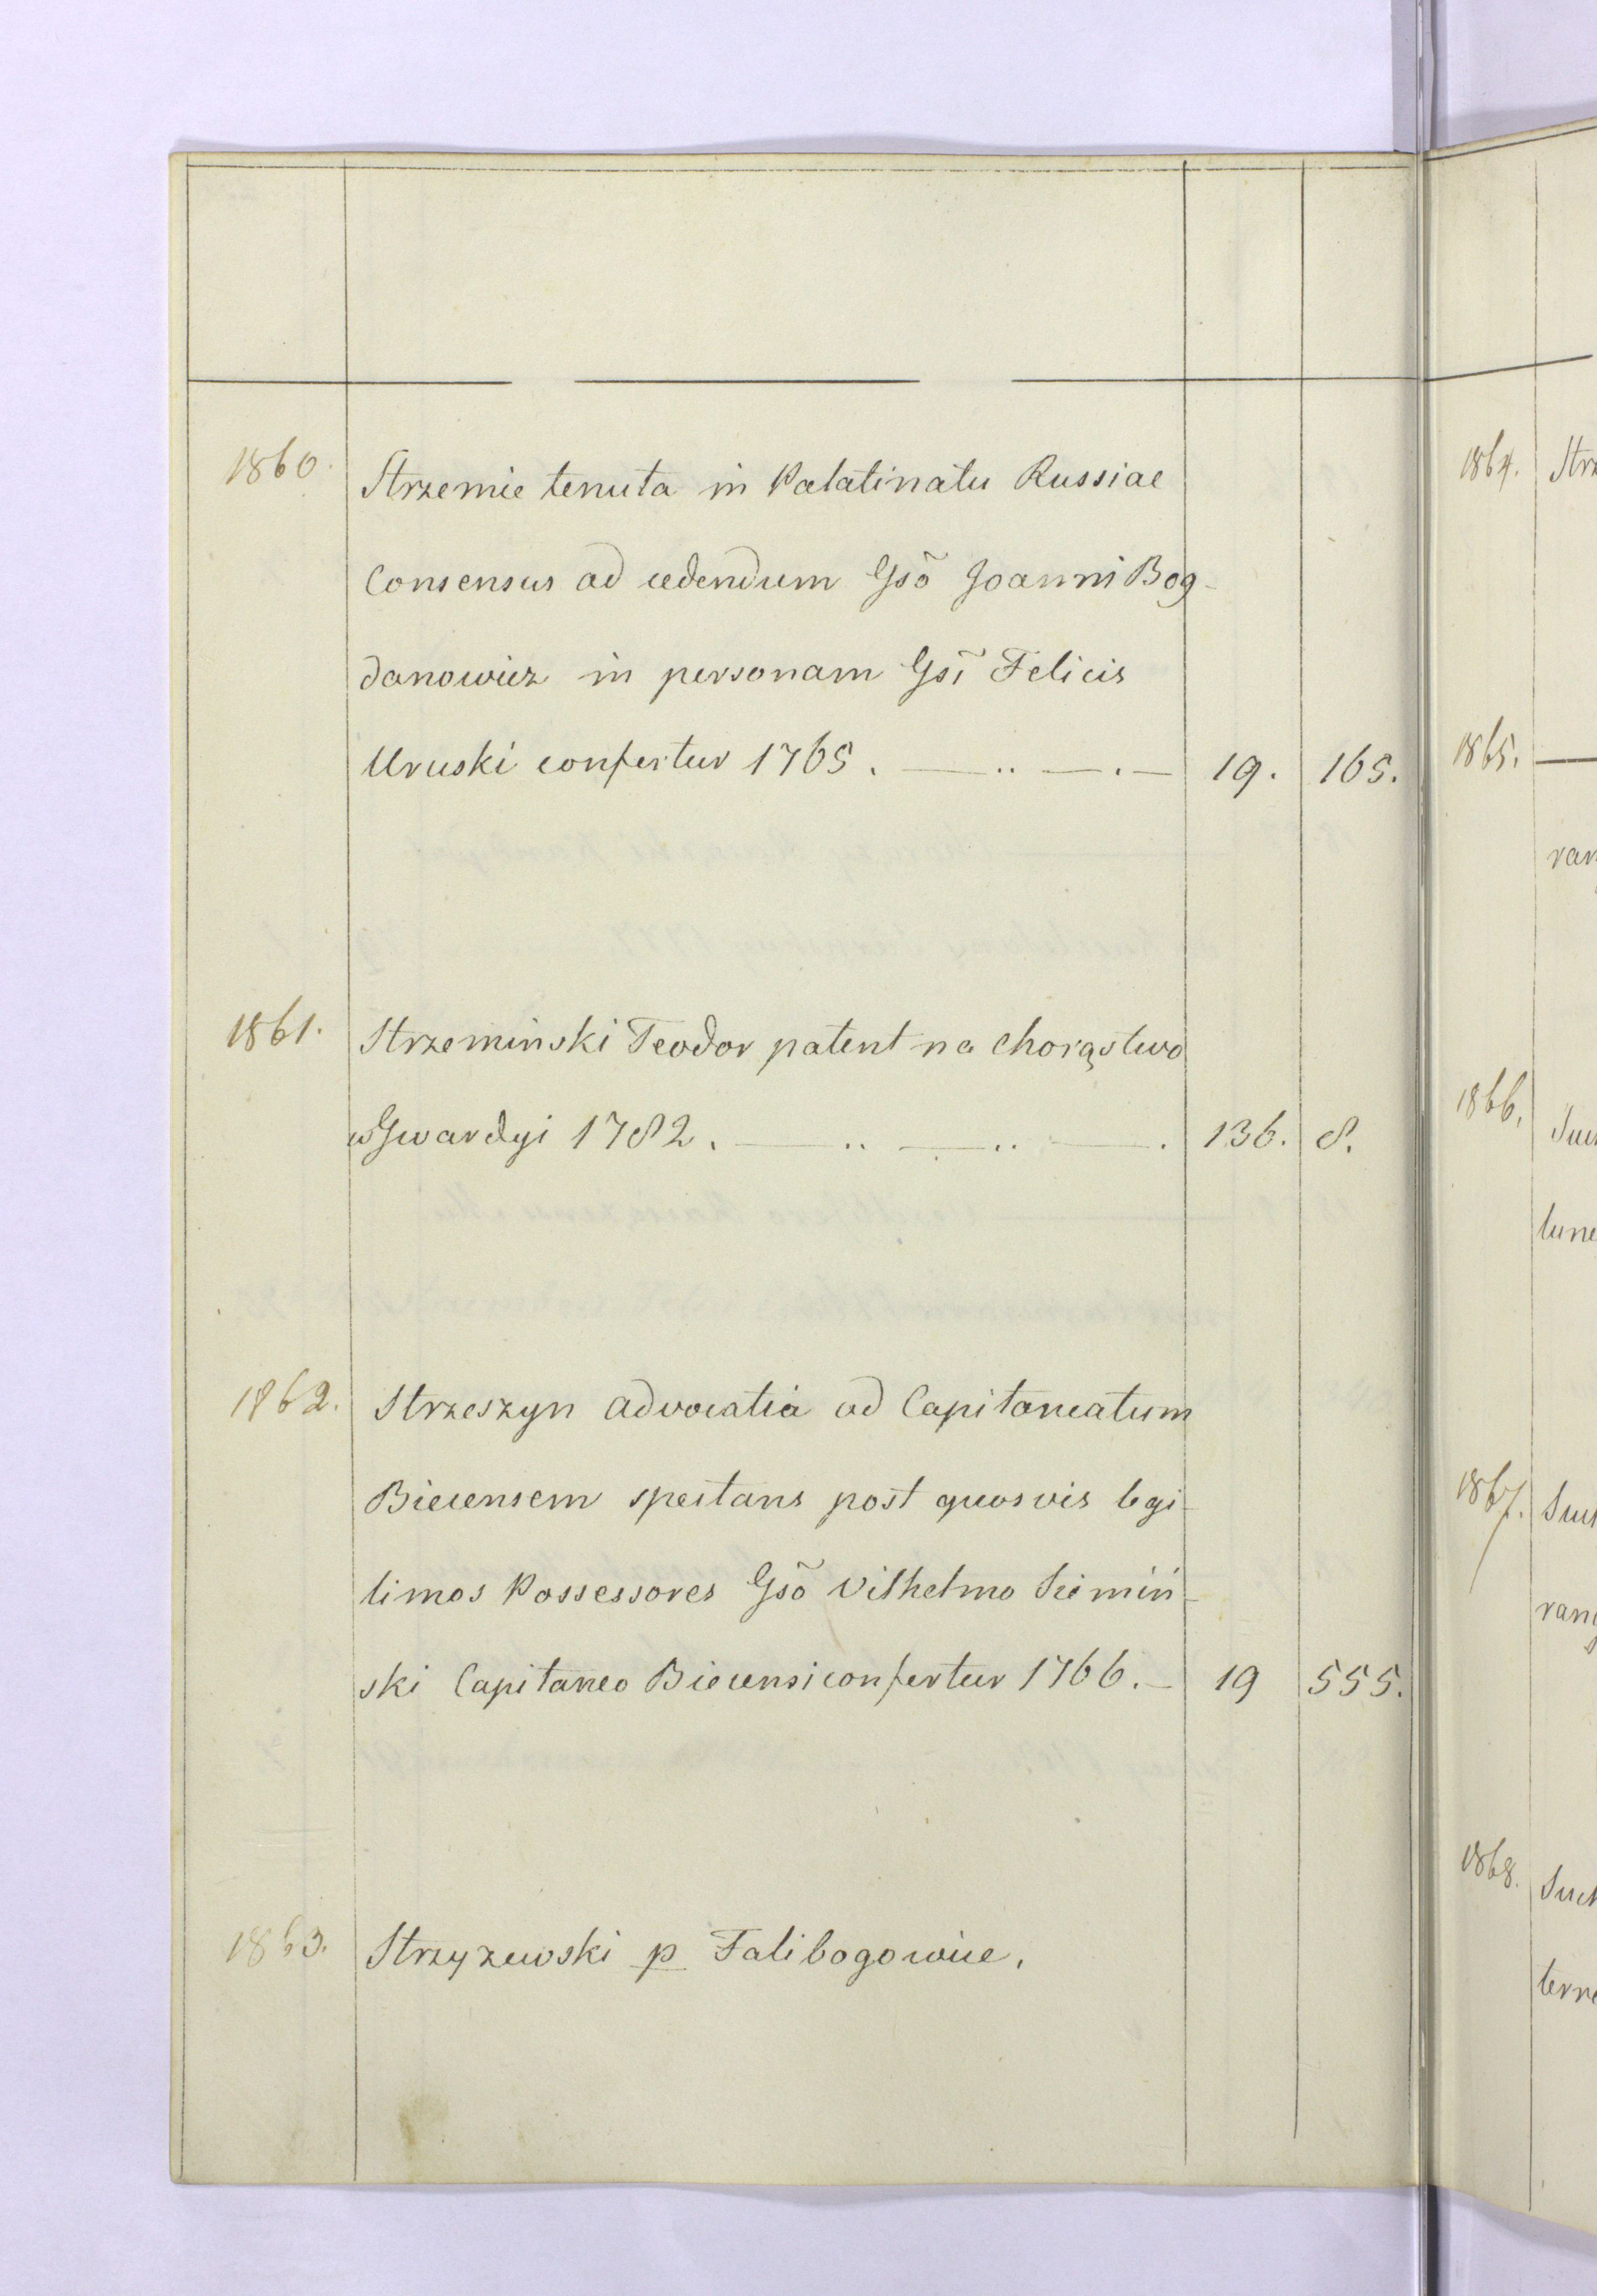 1860. Strzemie tenuta in Palatinatu Russiae
Consensus ad cedendum Gsõ Joanni Bog-
danowicz in personam Gsĩ Felicis
Uruski confertur 1765. — .. — . — 19. 165.
1861. Strzeminski Teodor patent na chorąstwo
w Gwardyi 1782. — .. — .. — . 136. 8.
1862. Strzeszyn advocatia ad Capitaneatum
Biecensem spectans post quosvis legi-
timos Possessores Gsõ Vilhelmo Siemiń-
ski Capitaneo Biecensi confertur 1766. — 19 555.
1863. Strzyzewski p Falibogowice.
1864. Strz
1865. —
ran
1866.
tune
1867. Such
rang
1868. Such
terne